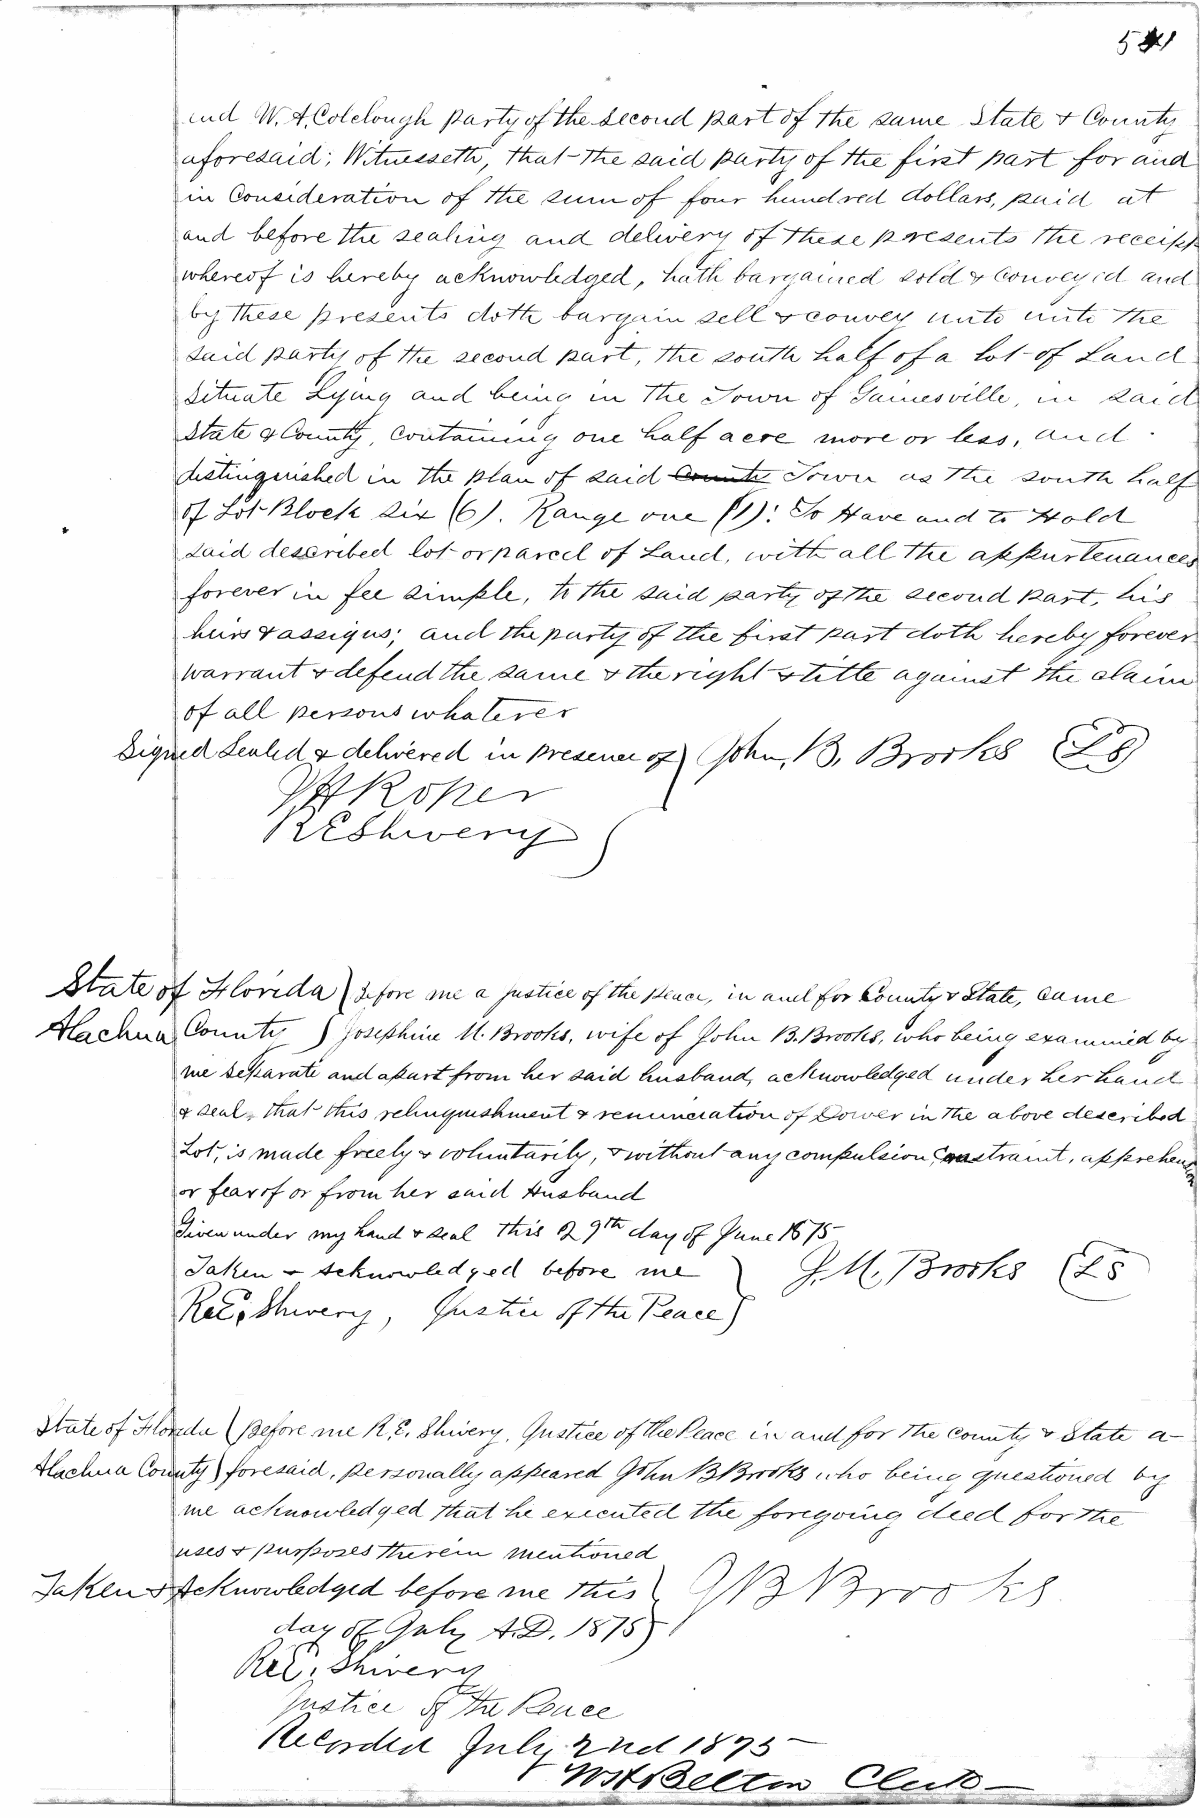 541
and W. A. Colclough party of the second part of the same State & County
aforesaid; Witnesseth, that the said party of the first part for and
in Consideration of the sum of four hundred dollars, paid at
and before the sealing and delivery of these presents the receipt
whereof is hereby acknowledged, hath bargained sold & conveyed and
by these presents doth bargain sell & convey unto unto the
said party of the second part, the south half of a lot of Land
Situate Lying and being in the Town of Gainesville, in said
State & County, containing one half acre more or less, and
distinguished in the plan of said County Town as the south half
of Lot Block six (6). Range one (1): To Have and to Hold
said described lot or parcel of Land, with all the appurtenances
forever in fee simple, to the said party of the second part, his
heirs & assigns; and the party of the first part doth hereby forever
warrant & defend the same & the right & title against the claim
of all persons whatever
Signed Sealed & delivered in presence of) John, B. Brooks (LS)
J H Roper
R E Shivery
State of Florida ) Before me a Justice of the Peace, in and for County & State, came
Alachua County ) Josephine M. Brooks, wife of John B. Brooks, who being examined by
me separate and apart from her said husband, acknowledged under her hand
& seal, that this relinquishment & renunciation of Dower in the above described
Lot, is made freely & voluntarily, & without any compulsion, Constraint, apprehension
or fear of or from her said Husband
Given under my hand & seal this 29th day of June 1875
Taken & Acknowledged before me ) J. M. Brooks (LS
R. E. Shivery, Justice of the Peace)
State of Florida ( Before me R. E. Shivery, Justice of the Peace in and for the county & State a-
Alachua County ) foresaid, personally appeared John B Brooks who being questioned by
me acknowledged that he executed the foregoing deed for the
uses & purposes therein mentioned
Taken & Acknowledged before me this ) J B Brooks
day of July A.D. 1875)
R. E. Shivery
Justice of the Peace
Recorded July 2nd 1875
Belton Clerk